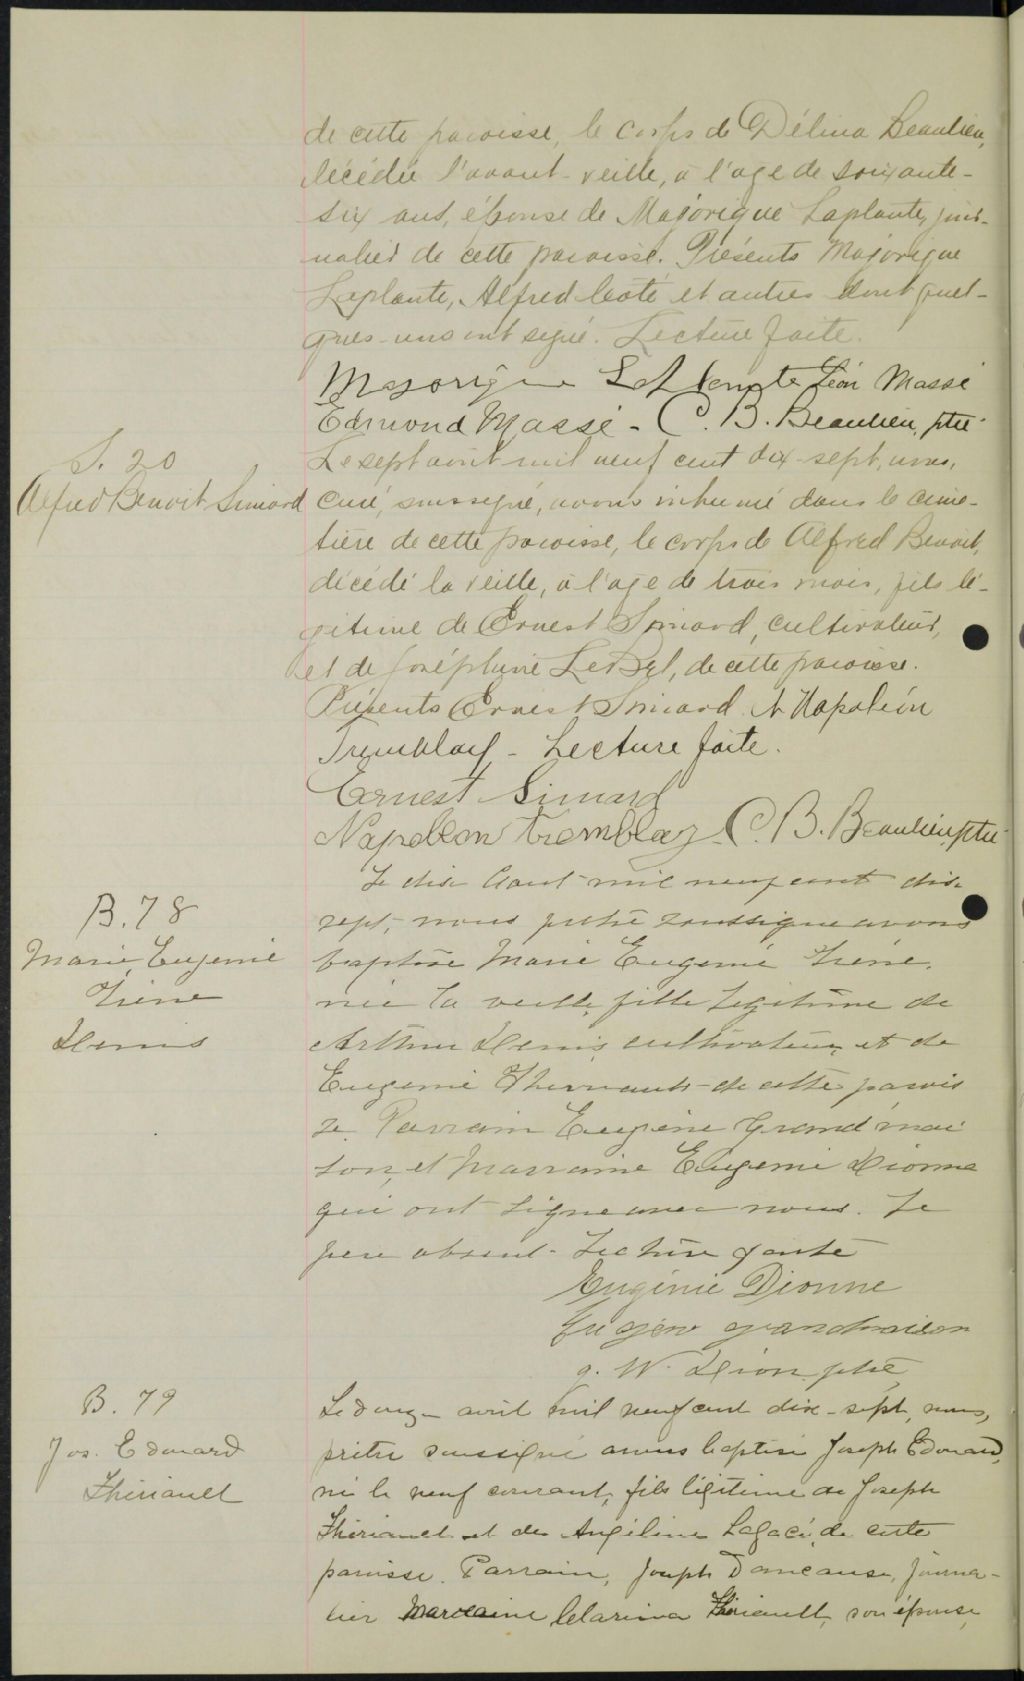 de cette paroisse, le corps de Délina Beaulieu,
décédée l'avant-veille, à l'age de soixante-
six ans, épouse de Majorique Laplante, jour-
nalier de cette paroisse. Présents Majorique
Laplante, Alfred Coté et autres dont quel-
ques-uns ont signé. Lecture faite.
Majorique Laplante Léon Massé
Edmond Massé - C. B. Beaulieu, ptre
S. 20
Alfred Benoit Simard
Le sept août mil neuf cent dix-sept, nous,
curé, soussigné, avons inhumé dans le cime-
tière de cette paroisse, le corps de Alfred Benoit,
décédé la veille, à l'age de trois mois, fils lé-
gitime de Ernest Simard, cultivateur,
et de Joséphine LeBel, de cette paroisse.
Présents Ernest Simard et Napoléon
Tremblay - Lecture faite.
Ernest Simard
Napoléon Tremblay C. B. Beaulieu, ptre
B. 78
Marie Eugenie
Irène
Denis
Le dix Aout mil neuf cent dix
sept, nous pretre soussigne avons
baptise Marie Eugenie Irène,
née la veille, fille legitime de
Arthur Denis, cultivateur, et de
Eugenie Theriault de cette parois
se. Parrain Eugène Grand'mai
son, et Marraine Eugenie Dionne
qui ont signe avec nous. Le
pere absent. Lecture faite
Eugénie Dionne
Eugène grandmaison
W. Dion ptre
B. 79
Jos. Edouard
Thériault
Le douze août mil neuf cent dix-sept, nous,
prêtre soussigné avons baptisé Joseph Edouard,
né le neuf courant, fils légitime de Joseph
Thériault et de Angélina Lagacé, de cette
paroisse. Parrain, Joseph Dancause, journa-
lier Marraine Clarina Thériault, son épouse,